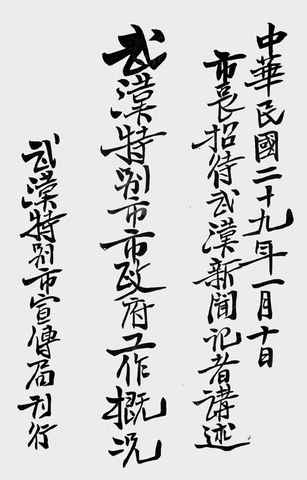 中華民國二十九年一月十日
市長招待武漢新聞记者講述
武漢特别市市政府工作概况
武漢特别市宣傳局刊行